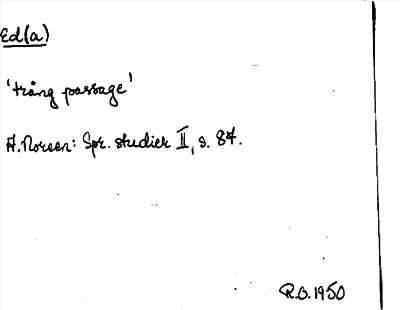 Ed(a)
'trång passage'
A. Noreen: Spr. studier II, s. 84.
R.O. 1950